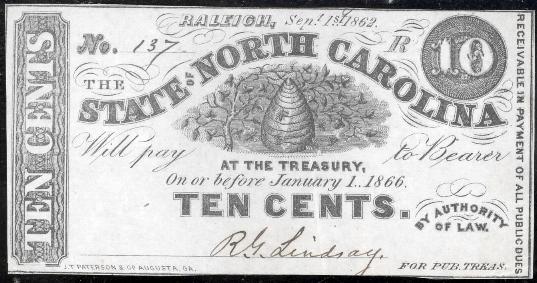 RALEIGH, Sep. 1st 1862.
No. 137
R
10
THE
STATE OF NORTH CAROLINA
Will pay to Bearer
AT THE TREASURY,
On or before January 1. 1866.
TEN CENTS.
BY AUTHORITY
OF LAW.
R.G. Lindsay.
FOR PUB. TREAS.
J.T. PATERSON & CO AUGUSTA, GA.
TEN CENTS
RECEIVABLE IN PAYMENT OF ALL PUBLIC DUES